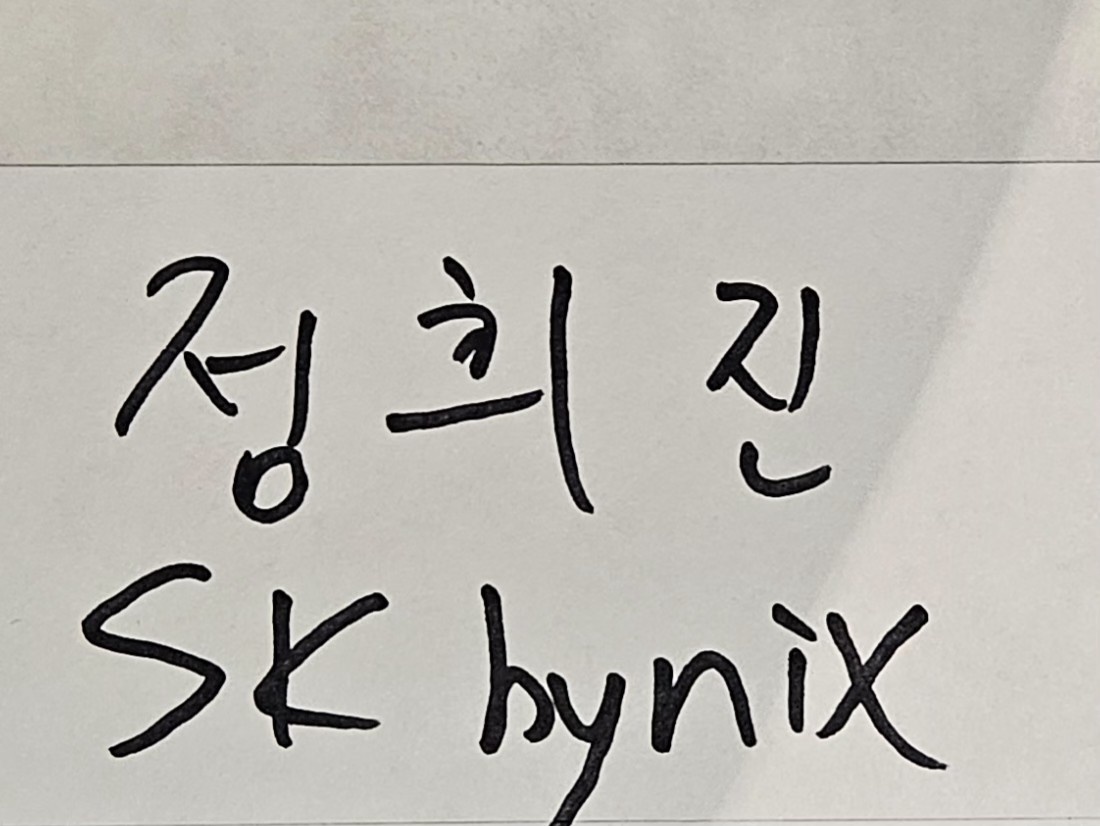 정희진
SK hynix